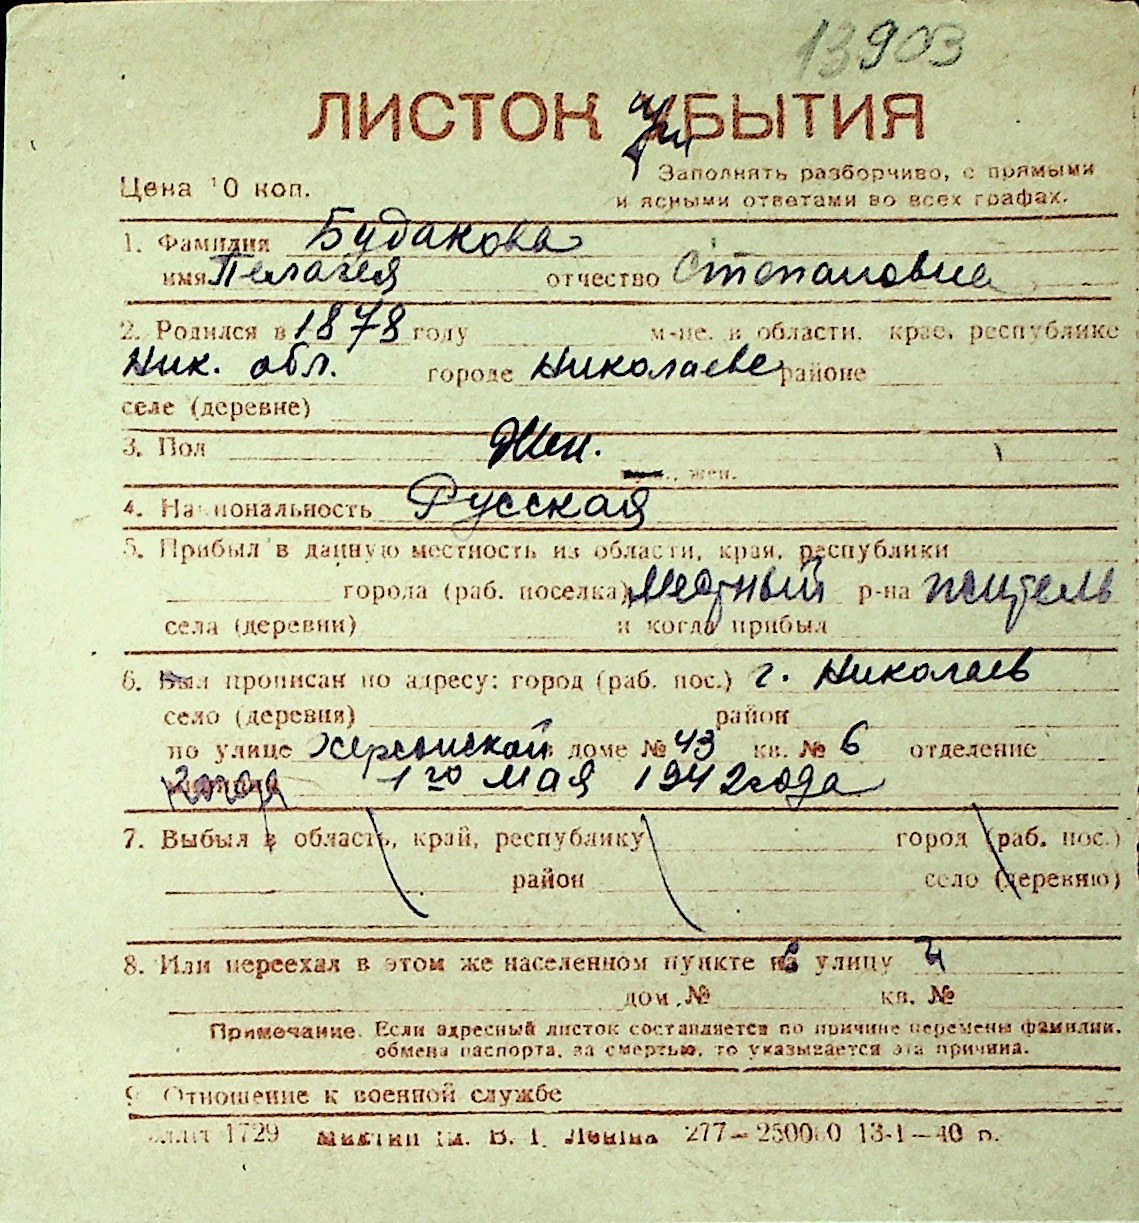 13903
ЛИСТОК ПРИБЫТИЯ
Цена 10 коп.
Заполнять разборчиво, с прямыми
и ясными ответами во всех графах.
1. Фамилия Будакова
имя Пелагея отчество Степановна
2. Родился в 1878 году м-це, в области, крае, республике
Ник. обл. городе Николаеве районе
селе (деревне)
3. Пол Жен.
жен.
4. Национальность Русская
5. Прибыл в данную местность из области, края, республики
города (раб. поселка) Местный р-на житель
села (деревни) и когда прибыл
6. Был прописан по адресу: город (раб. пос.) г. Николаев
село (деревня) район
по улице Херсонской доме № 43 кв. № 6 отделение
Когда 1го мая 1942 года
7. Выбыл в область, край, республику город (раб. пос.)
район село (деревню)
8. Или переехал в этом же населенном пункте на улицу
дом № кв. №
Примечание. Если адресный листок составляется по причине перемены фамилии,
обмена паспорта, за смертью, то указывается эта причина.
9. Отношение к военной службе
1729 Ленина 277—250000 13-1—40 р.